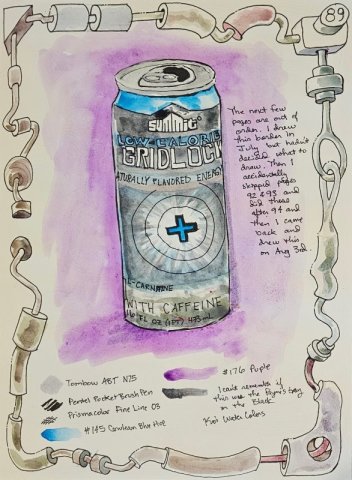 89
summit
LOW CALORIE
GRIDLOCK
NATURALLY FLAVORED ENERGY
L-CARNITINE
WITH CAFFEINE
16 FL OZ (1 PT) 473 mL
The next few
pages are out of
order. I drew
this border in
July but hadn't
decided what to
draw. Then I
accidentally
skipped pages
92 & 93 and
did these
after 94 and
then I came
back and
drew this
on Aug 3rd.
Tombow ABT N75
Pentel Pocket Brush Pen
Prismacolor Fine Line 03
#145 Cerulean Blue Hue
#176 Purple
I can't remember if
this was the Payne's Grey
or the Black
Koi Water Colors